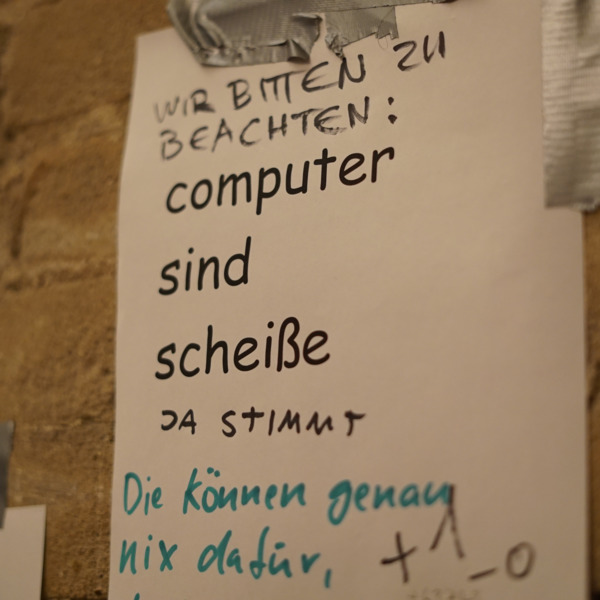 WIR BITTEN ZU
BEACHTEN:
computer
sind
scheiße
JA STIMMT
Die können genau
nix dafür,
+1 -0